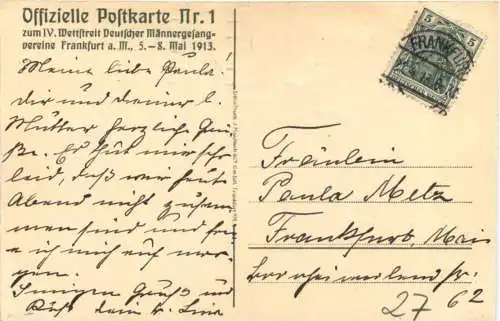 Offizielle Postkarte Nr. 1
zum IV. Wettstreit Deutscher Männergesang-
vereine Frankfurt a. M., 5.–8. Mai 1913.
Meine liebe Paula!
Dir und deiner l.
Mutter herzliche Grü-
ße. Es tut mir sehr
leid, daß wir heute
Abend nicht zusam-
men sind und freue
ich mich auf mor-
gen.
Innigen Gruß und
Kuß dein
5
5
FRANKFURT
Fräulein
Paula Metz
Frankfurt, Main
27 62